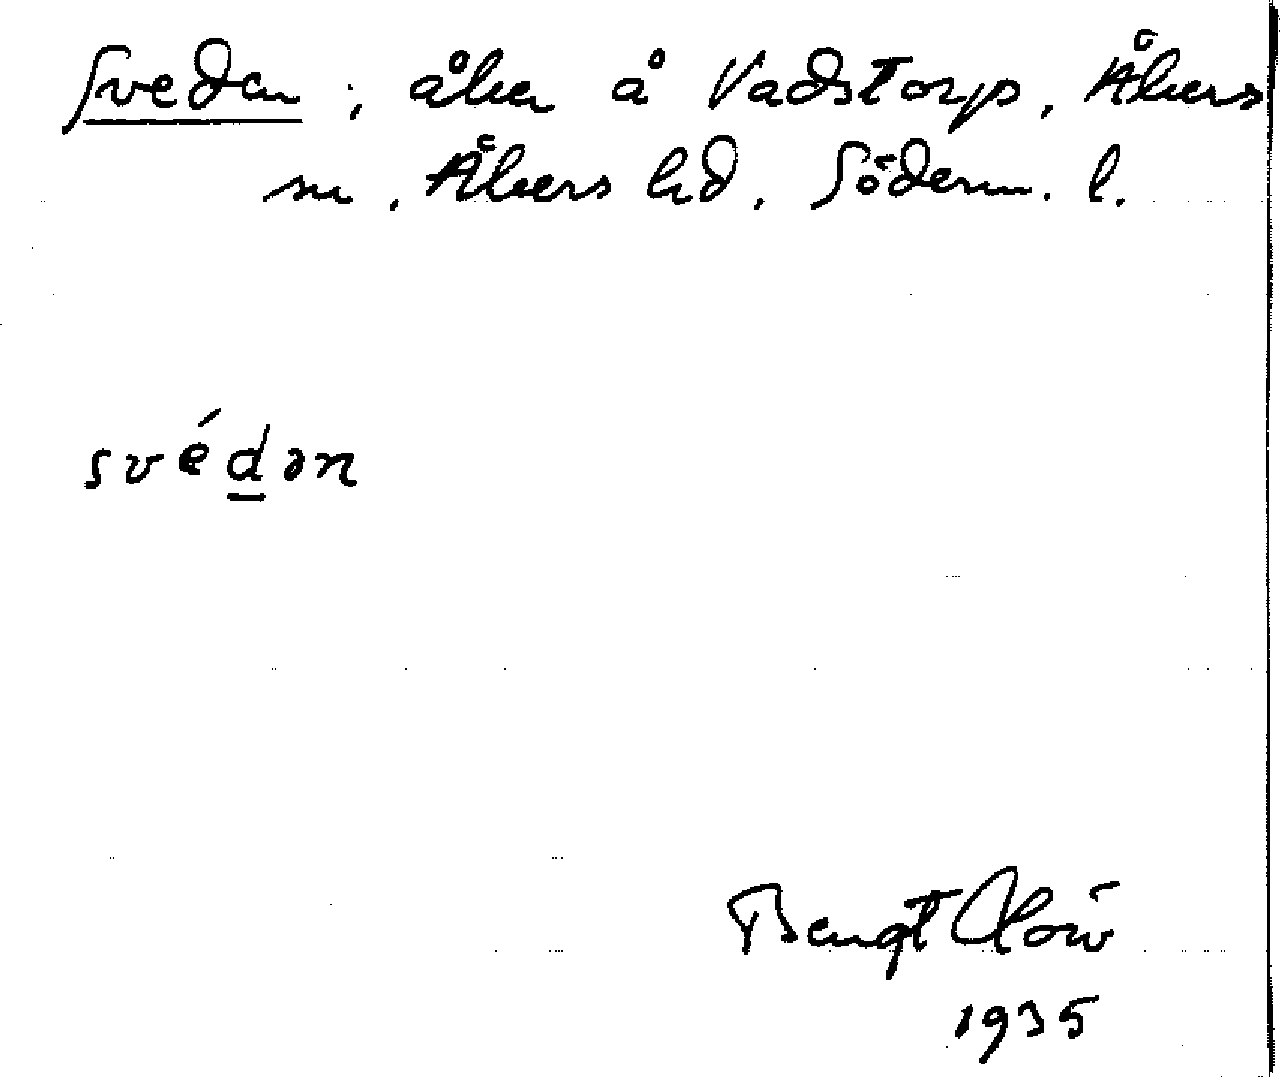 Svedan, åker å Vadstorp, Åkers
sn, Åkers hd, Söderm. l.
svédən
Bengt
1935